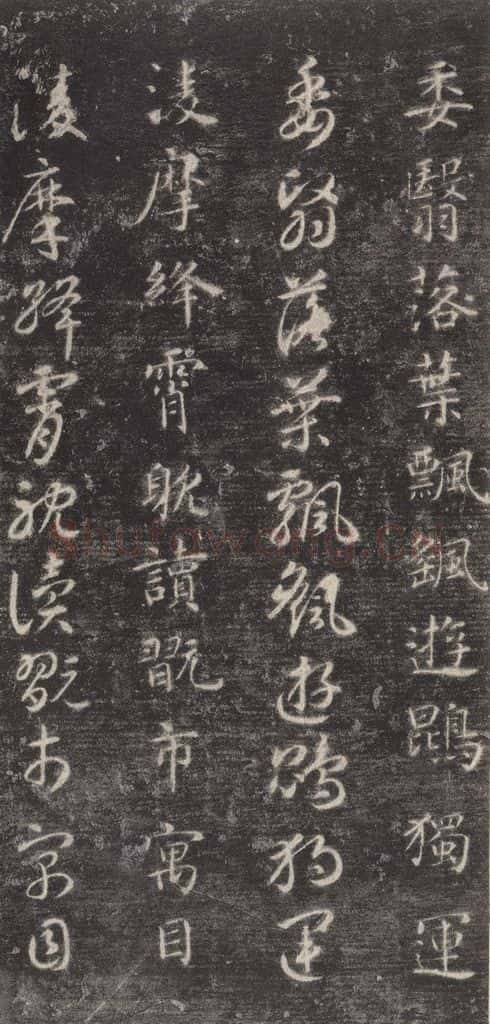 委翳落葉飄颻遊鵾獨運
委翳落葉飄颻遊鵾獨運
凌摩絳霄耽讀翫市寓目
凌摩絳霄耽讀翫市寓目
Shufawang.CN